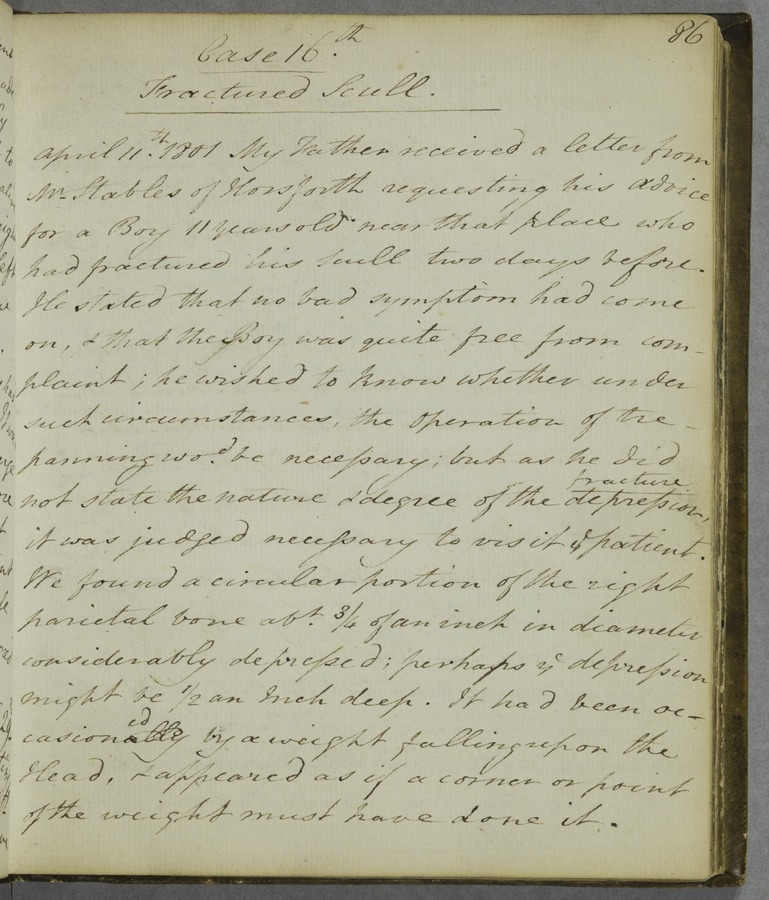 86
Case 16.th
Fractured Scull.
April 11th. 1801 My Father received a letter from
Mr. Stables of Horsforth requesting his advice
for a Boy 11 years old near that place who
had fractured his scull two days before.
He stated that no bad symptom had come
on, & that the Boy was quite free from com-
plaint; he wished to know whether under
such circumstances, the Operation of tre-
panning wod. be necessary; but as he did
fracture
not state the nature & degree of the depression,
it was judged necessary to visit ye patient.
We found a circular portion of the right
parietal bone abt. 3/4 of an inch in diameter
considerably depressed; perhaps ye depression
might be 1/2 an Inch deep. It had been oc-
ed
casionally by a weight falling upon the
Head, & appeared as if a corner or point
of the weight must have done it.